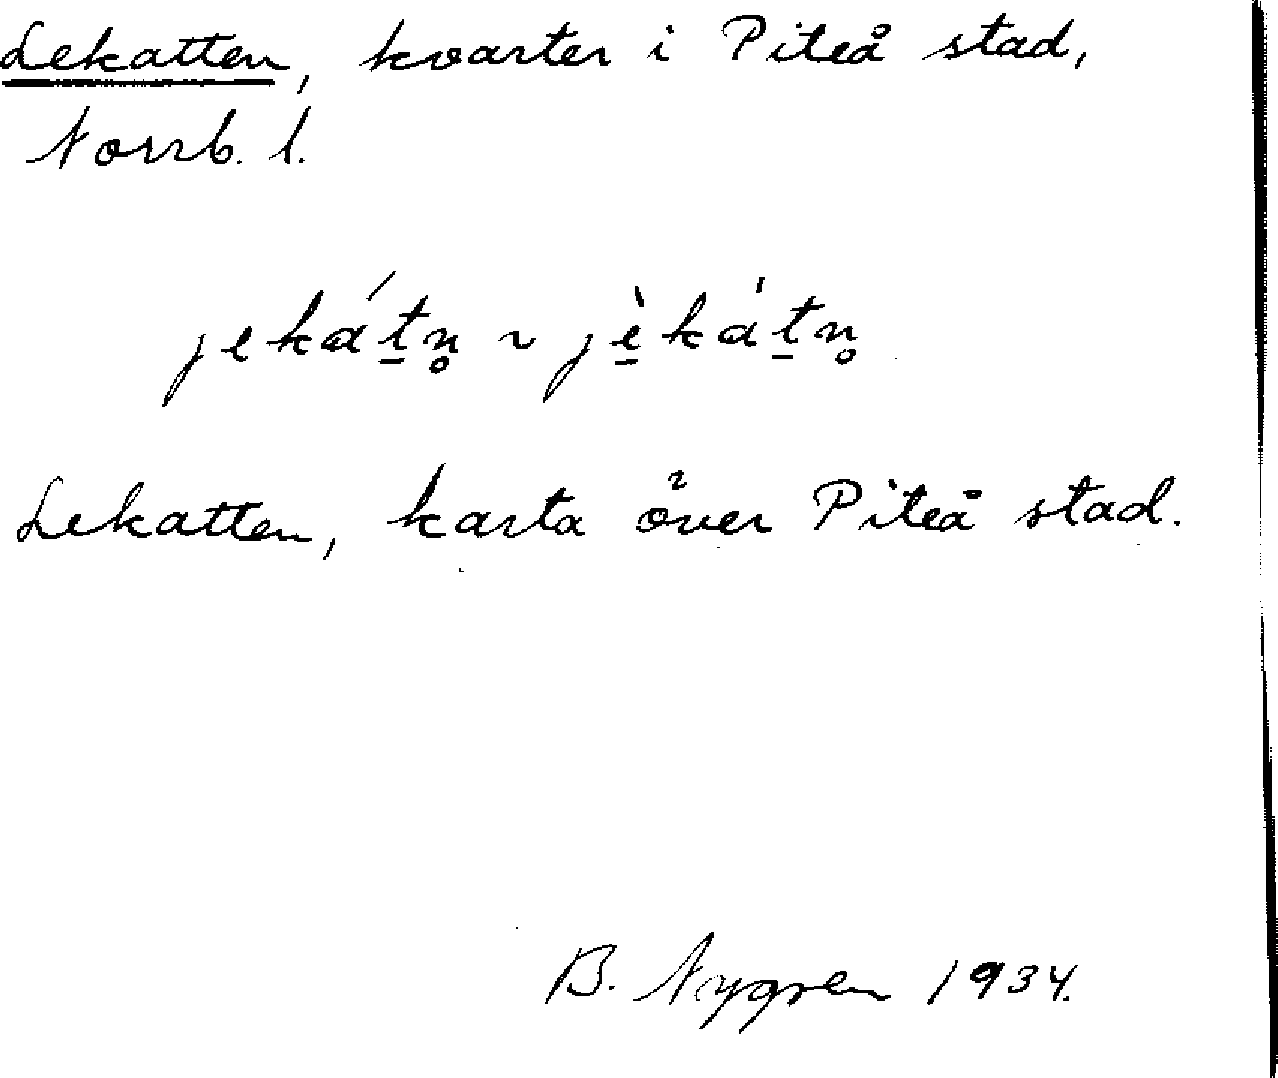 Lekatten, kvarter i Piteå stad,
Norrb. l.
jekát̲n̥ ~ jè̲ká̍t̲n̥
Lekatten, karta över Piteå stad.
B. Nygren 1934.